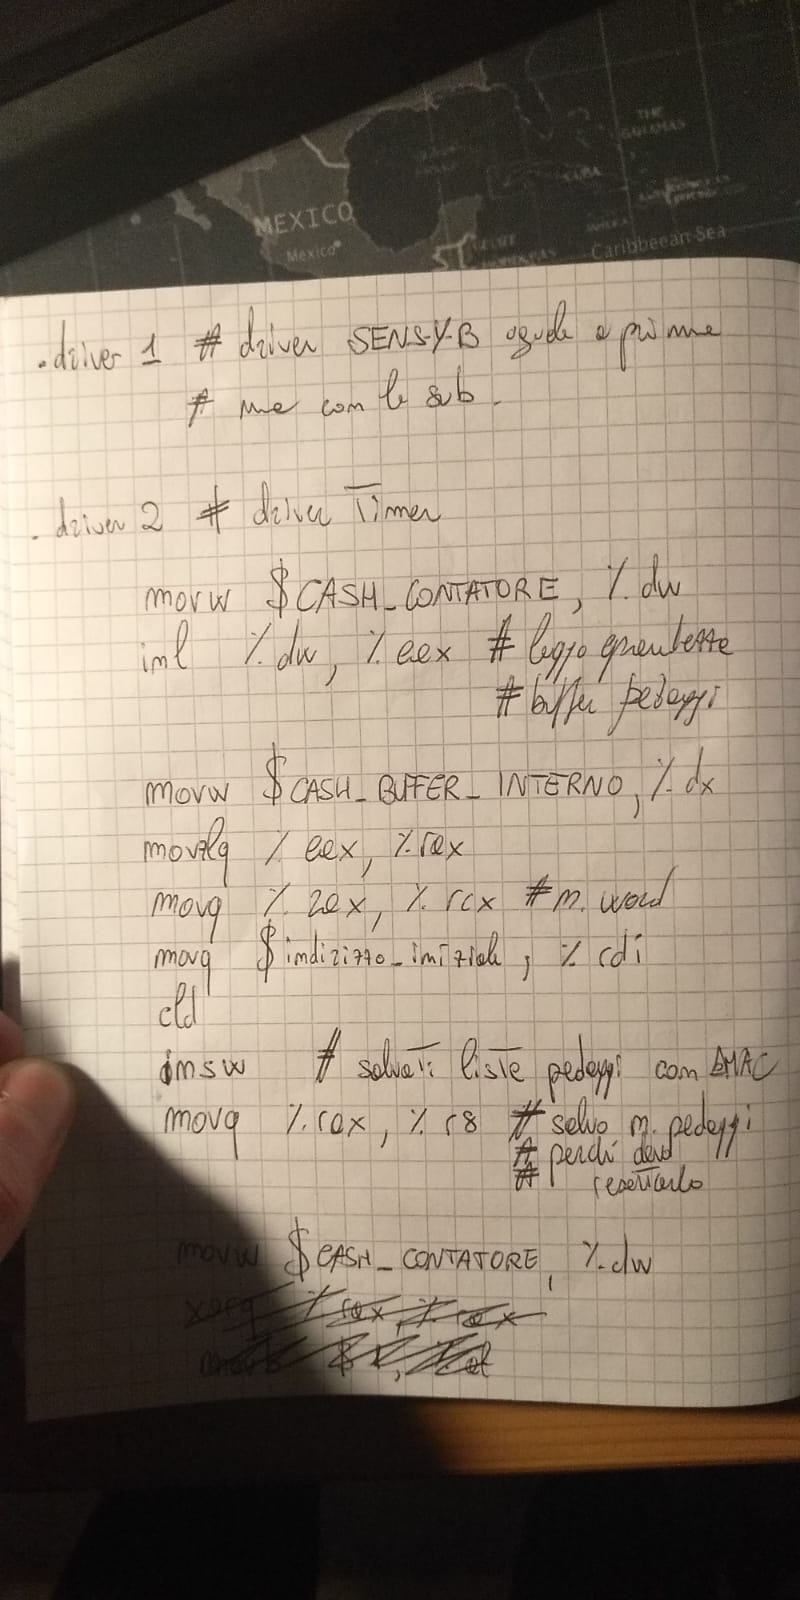 MEXICO
Mexico
THE
CUBA
Caribbeean Sea
.driver 1 # driver SENS-Y-B uguale a prima
# ma con le sub.
.driver 2 # driver Timer
movw $CASH_CONTATORE, %dw
inl %dw, %eax # leggo
# buffer pedaggi
movw $CASH_BUFFER_INTERNO, %dx
movzlq %eax, %rax
movq %rax, %rcx # n. word
movq $indirizzo_iniziale, %rdi
cld
insw # salvati liste pedaggi con DMAC
movq %rax, %r8 # salvo n. pedaggi
# perché devo
# resettarlo
movw $CASH_CONTATORE, %dw